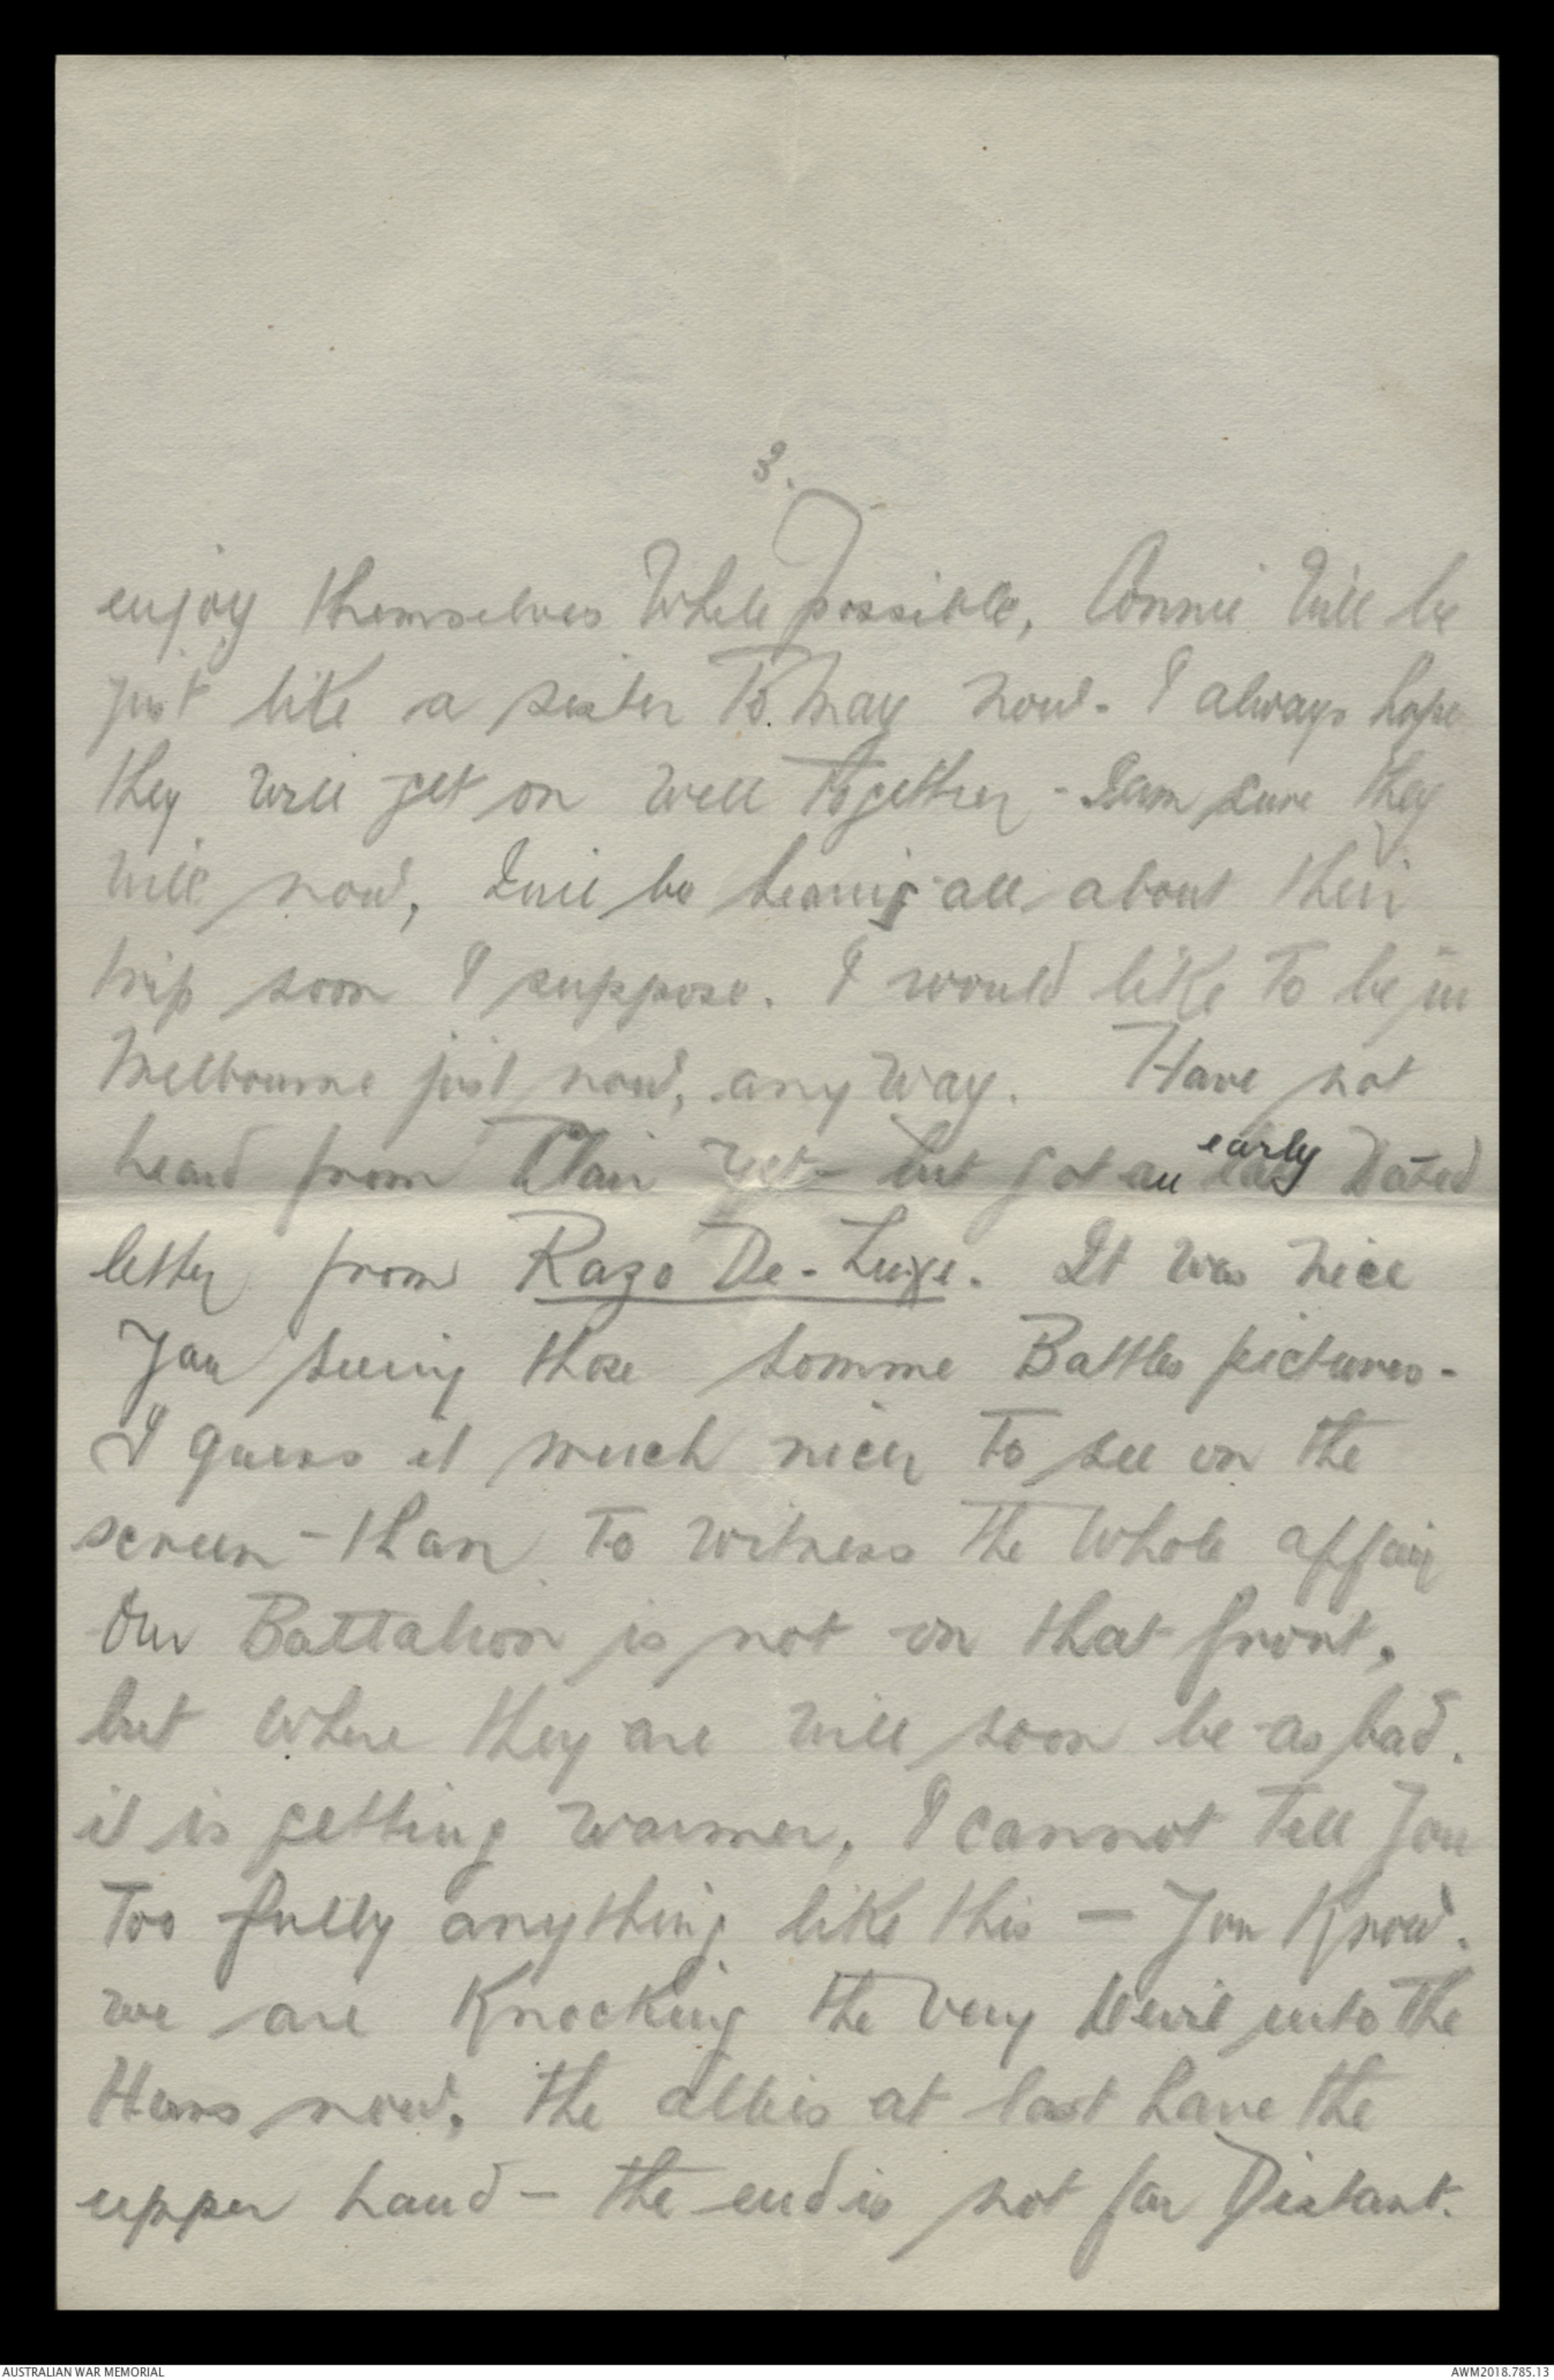 3.
enjoy themselves while possible, Connie will be
just like a sister to May now. I always hope
they will get on well together - I am sure they
will now, I will be hearing all about their
trip soon I suppose. I would like to be in
Melbourne just now, any way. Have not
heard from Clair yet - but got an early Dated
letter from Razo De-Luxe. It was nice
You seeing those Somme Battles pictures -
I guess it much nicer to see on the
screen - than to witness the whole affair
Our Battalion is not on that front,
but where they are will soon be as bad.
it is getting warmer, I cannot tell You
too fully anything like this - You Know.
we are Knocking the very Devil into the
Huns now, the allies at last have the
upper hand - the end is not far Distant.
AUSTRALIAN WAR MEMORIAL
AWM2018.785.13